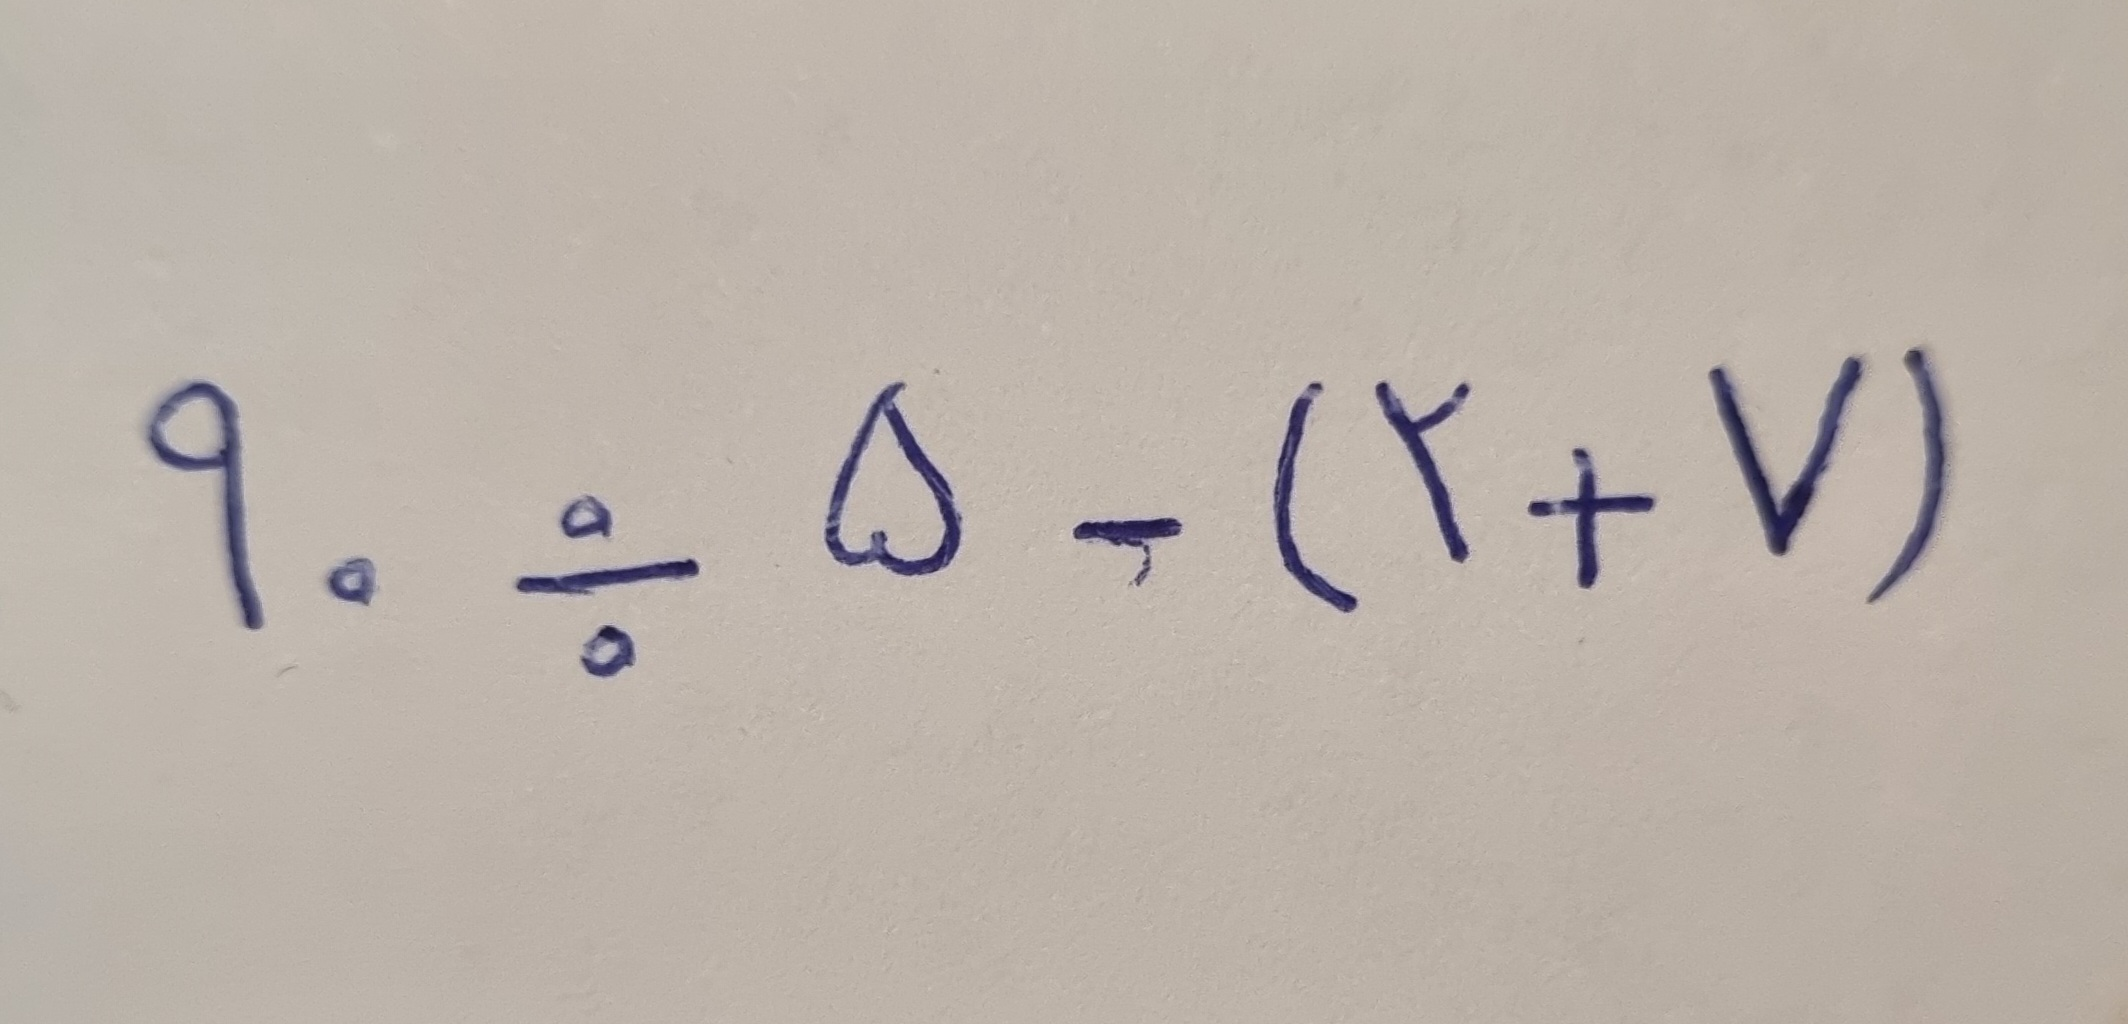 ۹۰ ÷ ۵ - (۲ + ۷)